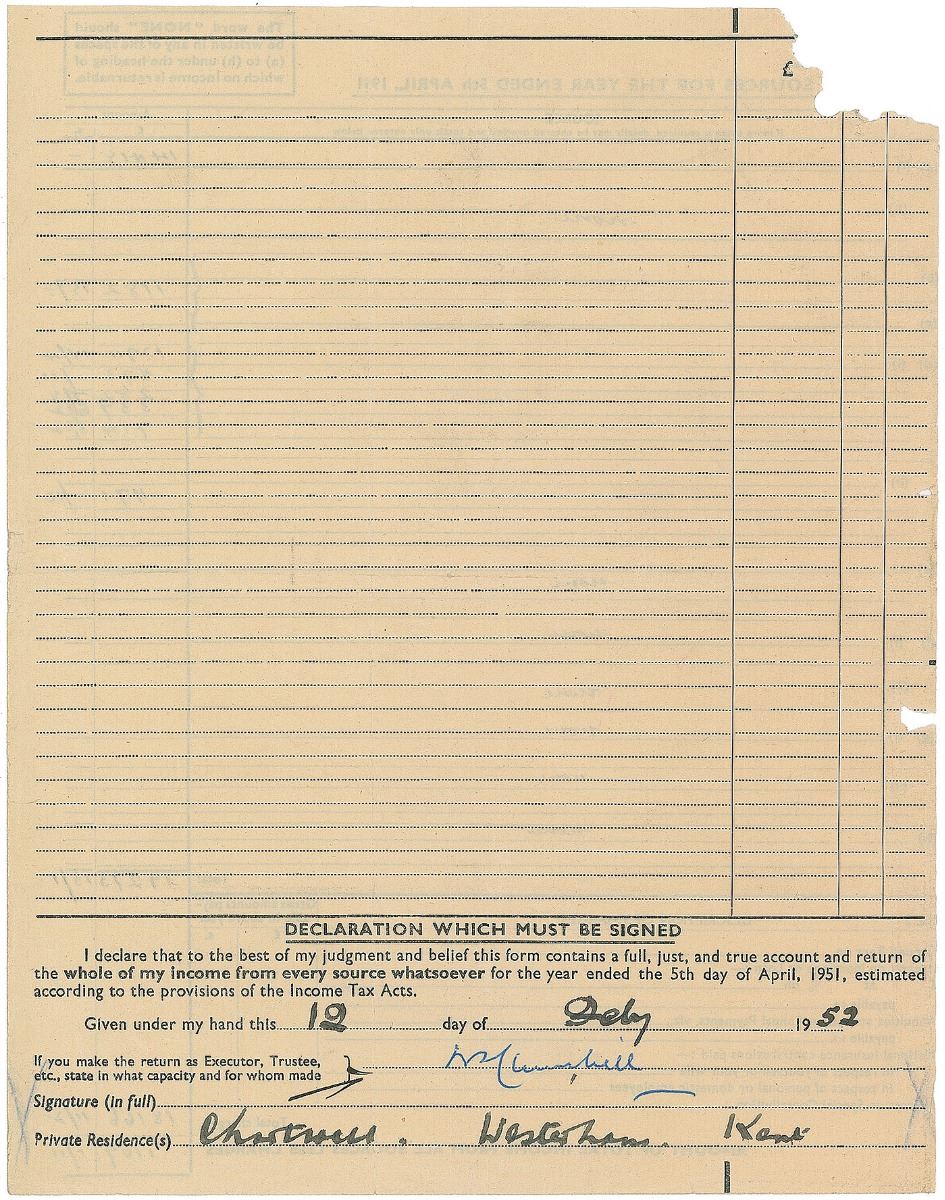 £
DECLARATION WHICH MUST BE SIGNED
I declare that to the best of my judgment and belief this form contains a full, just, and true account and return of
the whole of my income from every source whatsoever for the year ended the 5th day of April, 1951, estimated
according to the provisions of the Income Tax Acts.
Given under my hand this 12 day of Feby 1952
If you make the return as Executor, Trustee,
etc., state in what capacity and for whom made
WSChurchill
Signature (in full)
Private Residence(s) Chartwell. Westerham. Kent